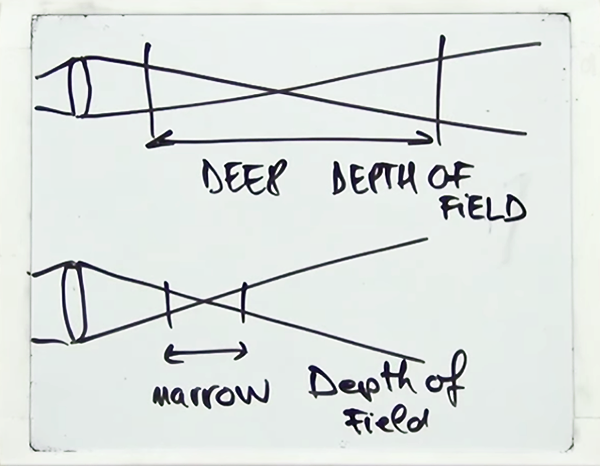 DEEP DEPTH OF
FiELD
Narrow Depth of
Field